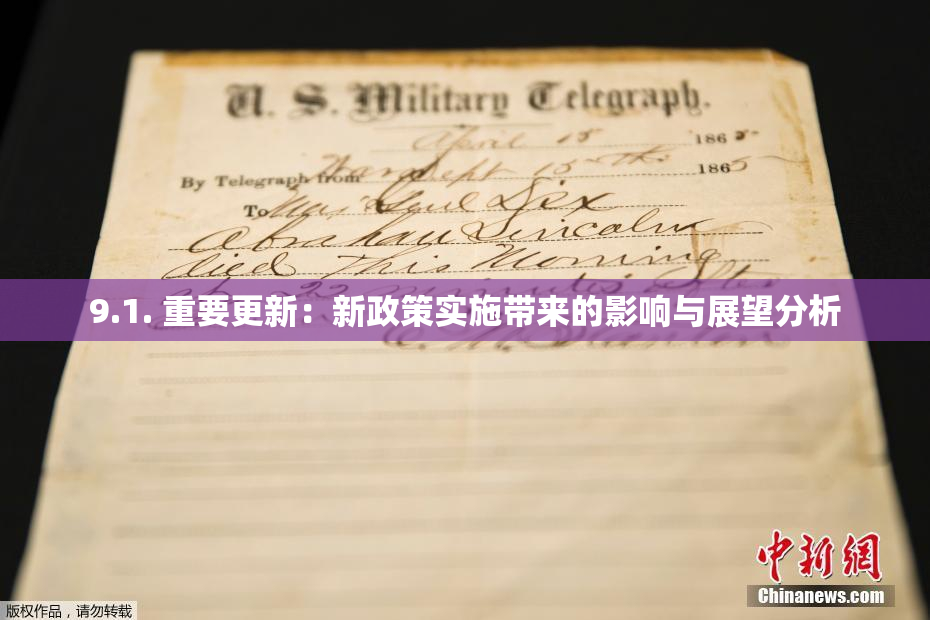 U. S. Military Telegraph.
April 15 1865
By Telegraph from War Dept 15th 1865
To Maj Genl Dix
Abraham Lincoln
died This Morning
at 22 minutes after
9.1. 重要更新：新政策实施带来的影响与展望分析
E. M. Stanton
中新网
Chinanews.com
版权作品，请勿转载